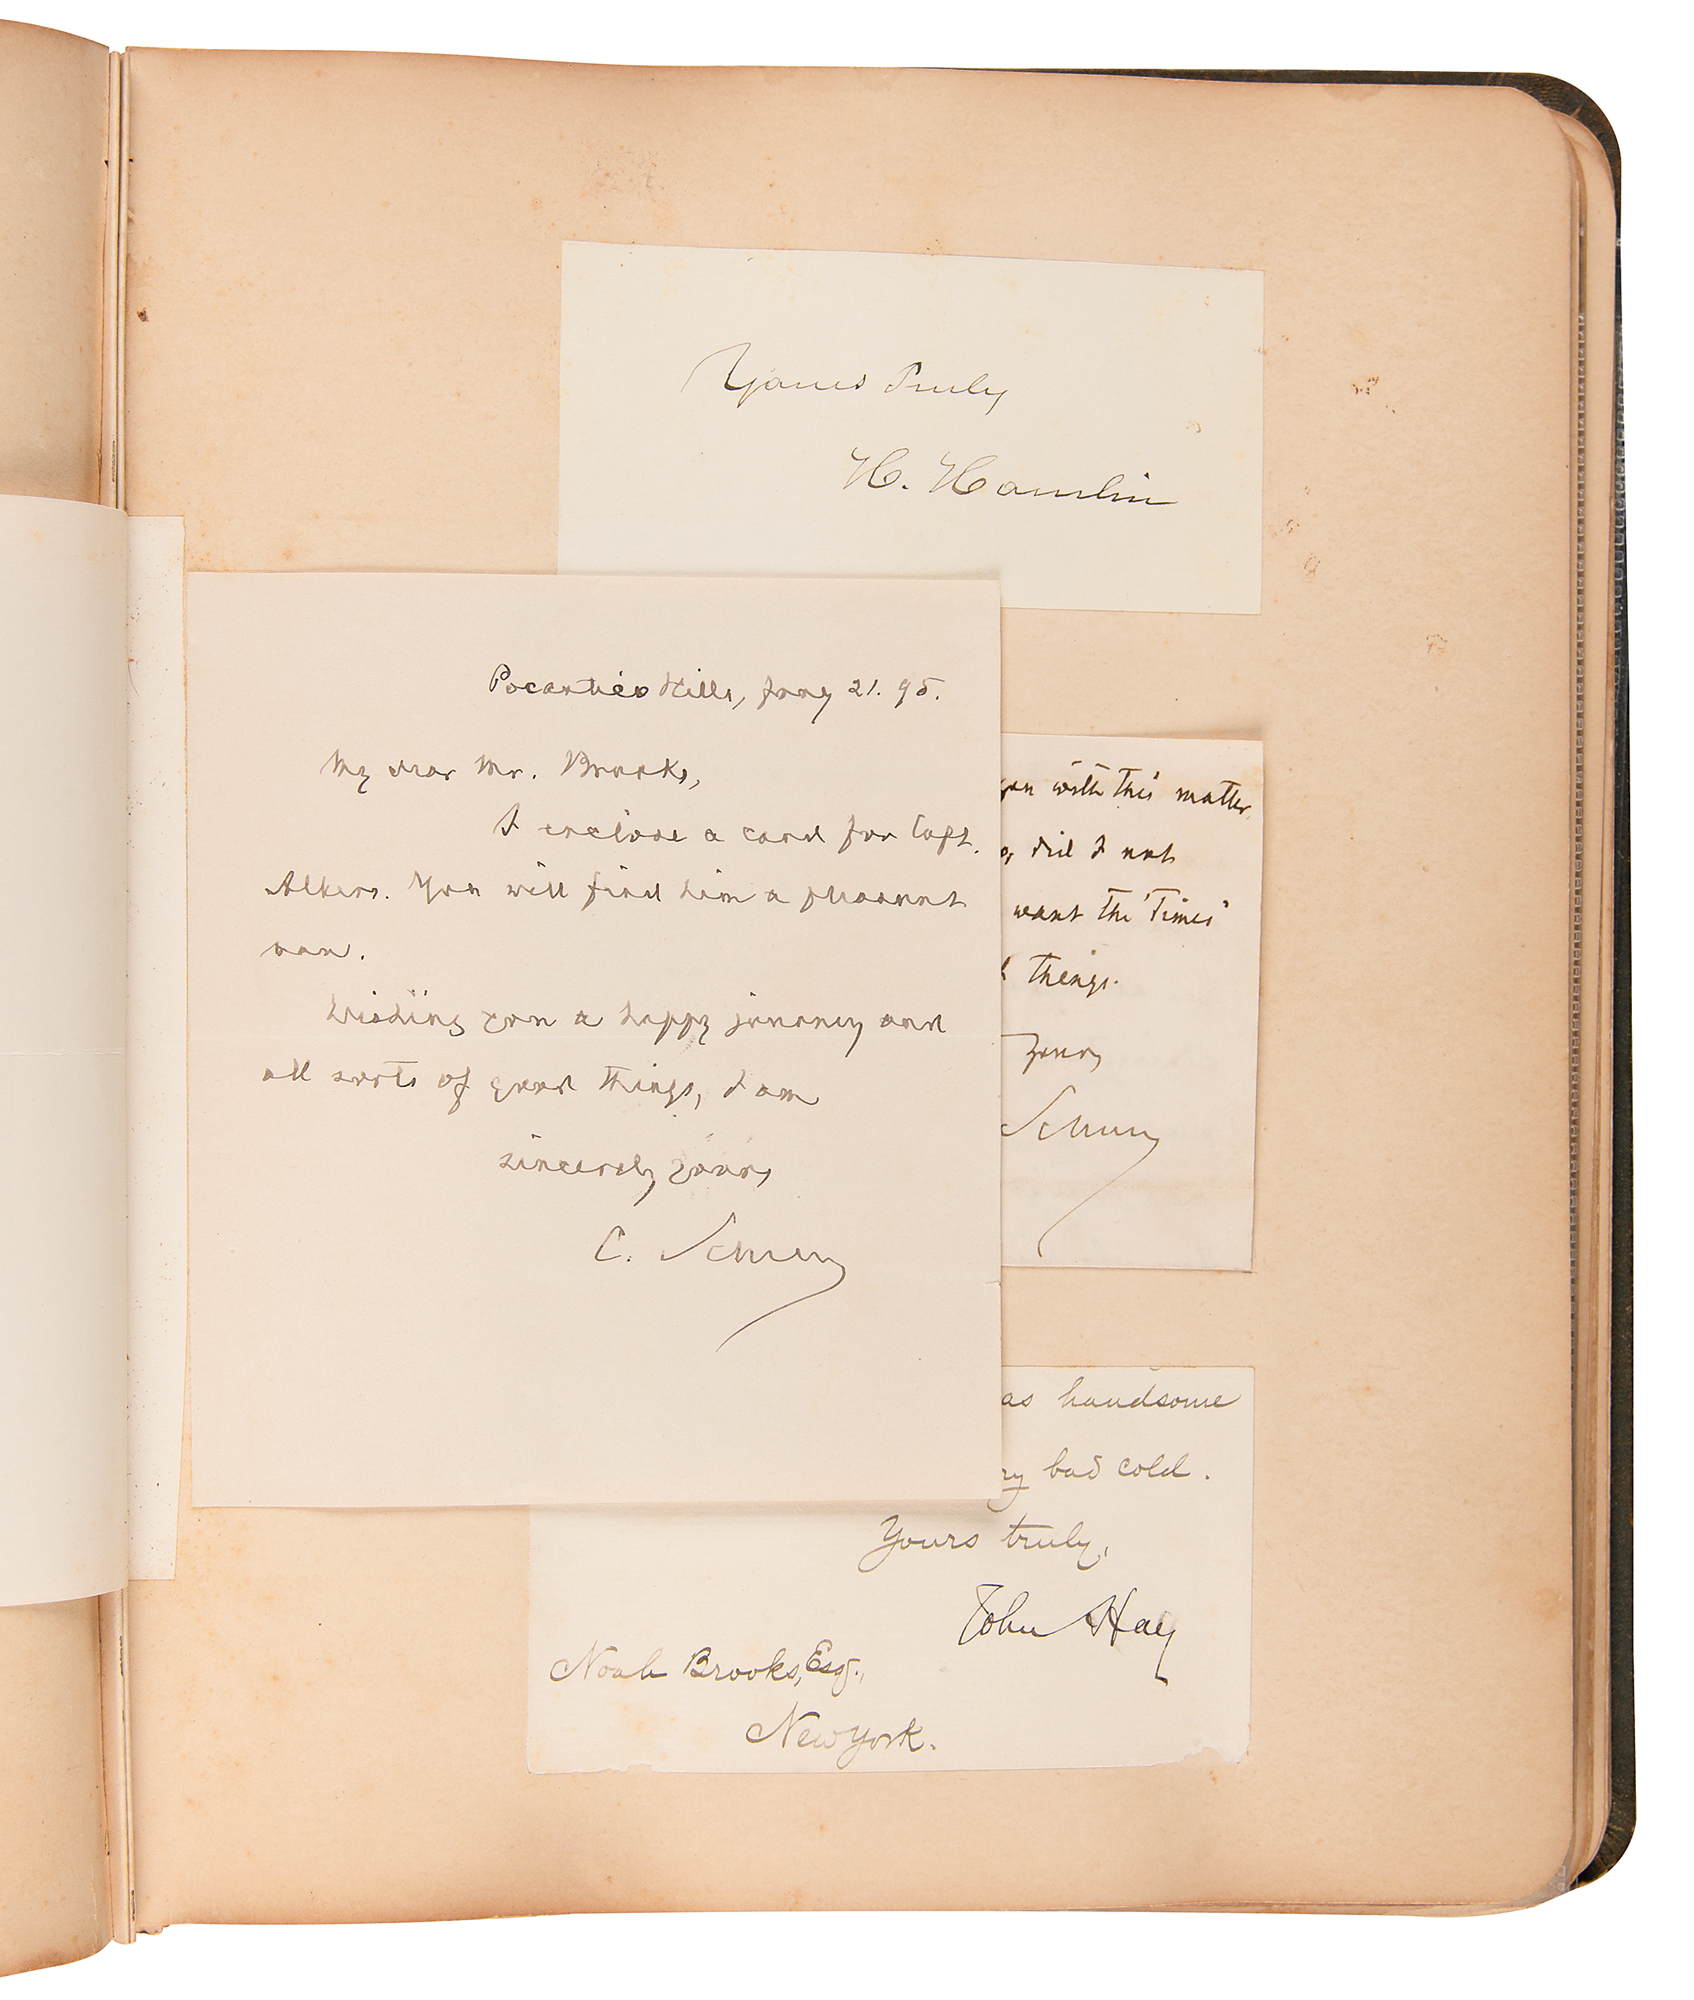 Yours Truly
H. Hamlin
Pocantico Hills, Jany 21. 95.
My dear Mr. Brooks,
I enclose a card for Capt.
Albers. You will find him a pleasant
man.
Wishing you a happy journey and
all sorts of good things, I am
sincerely yours,
C. Schurz
you with this matter
did I not
want the 'Times'
things.
Yours,
Schurz
as handsome
bad cold.
Yours truly,
John Hay
Noah Brooks, Esq.,
New York.